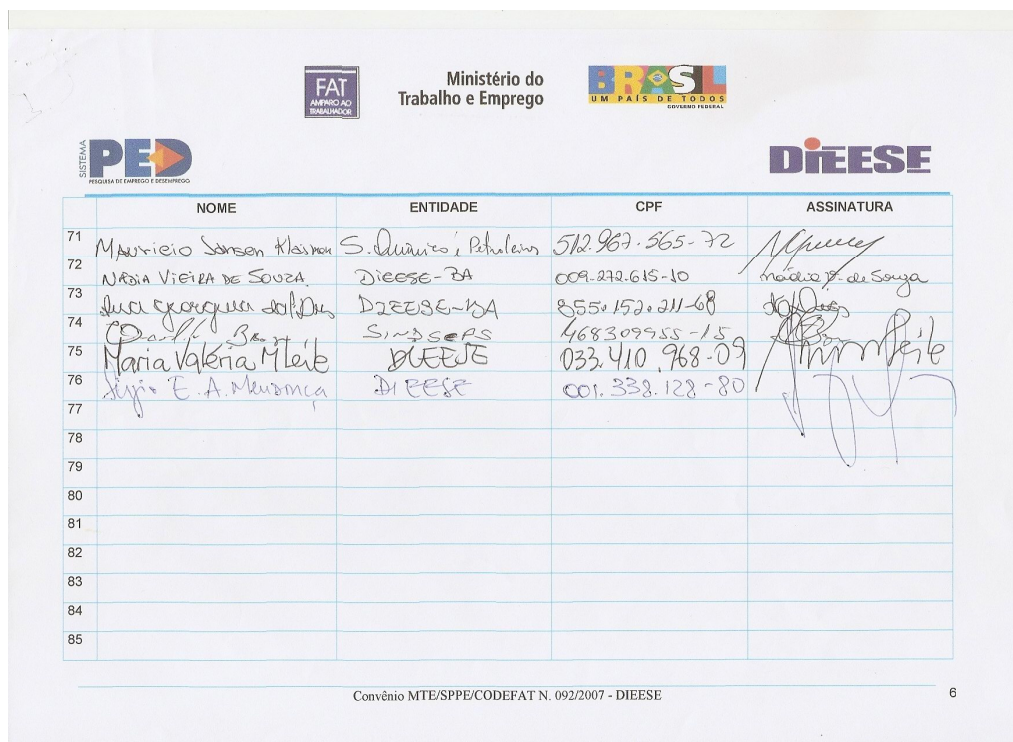 FAT
AMPARO AO
TRABALHADOR
Ministério do
Trabalho e Emprego
BRASIL
UM PAÍS DE TODOS
GOVERNO FEDERAL
SISTEMA
PED
PESQUISA DE EMPREGO E DESEMPREGO
DIEESE
NOME ENTIDADE CPF ASSINATURA
71 Mauricio Jansen Klajman S. Químico e Petroleiro 512.967.565-72
72 NÁDIA VIEIRA DE SOUZA. DIEESE-BA 009-272-615-10 Nádia V. de Souza
73 Ana Georgina DIEESE-BA 855.152.211-68
74 468309955-15
75 Maria Valéria M Leite DIEESE 033.410.968-09 Leite
76 Sérgio E. A. Mendonça DIEESE 001.338.128-80
77
78
79
80
81
82
83
84
85
Convênio MTE/SPPE/CODEFAT N. 092/2007 - DIEESE
6